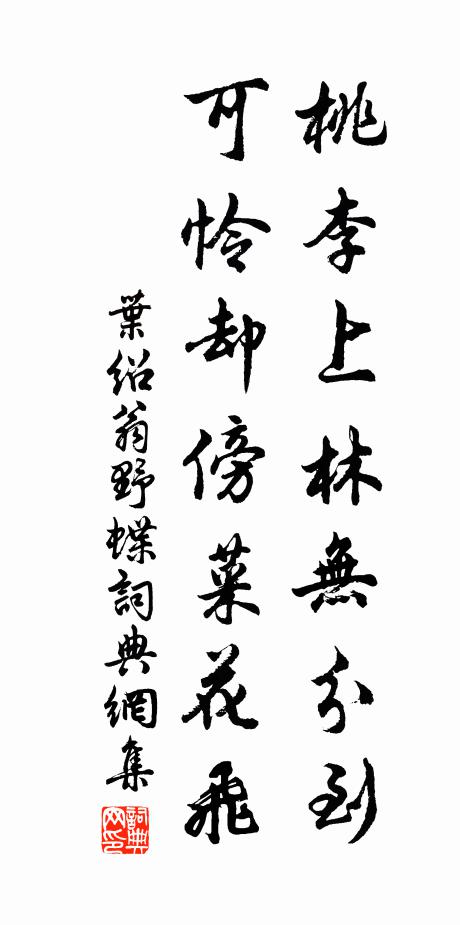 桃李上林無分到
可憐却傍菜花飛
葉紹翁野蝶詞典網集
詞典網印